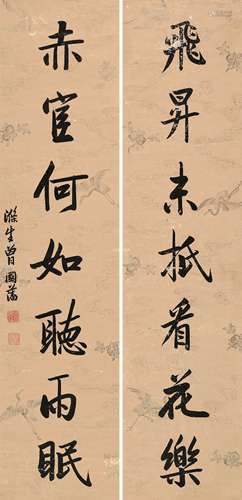 飛昇未抵看花樂
赤宦何如聽雨眠
滌生曾國藩